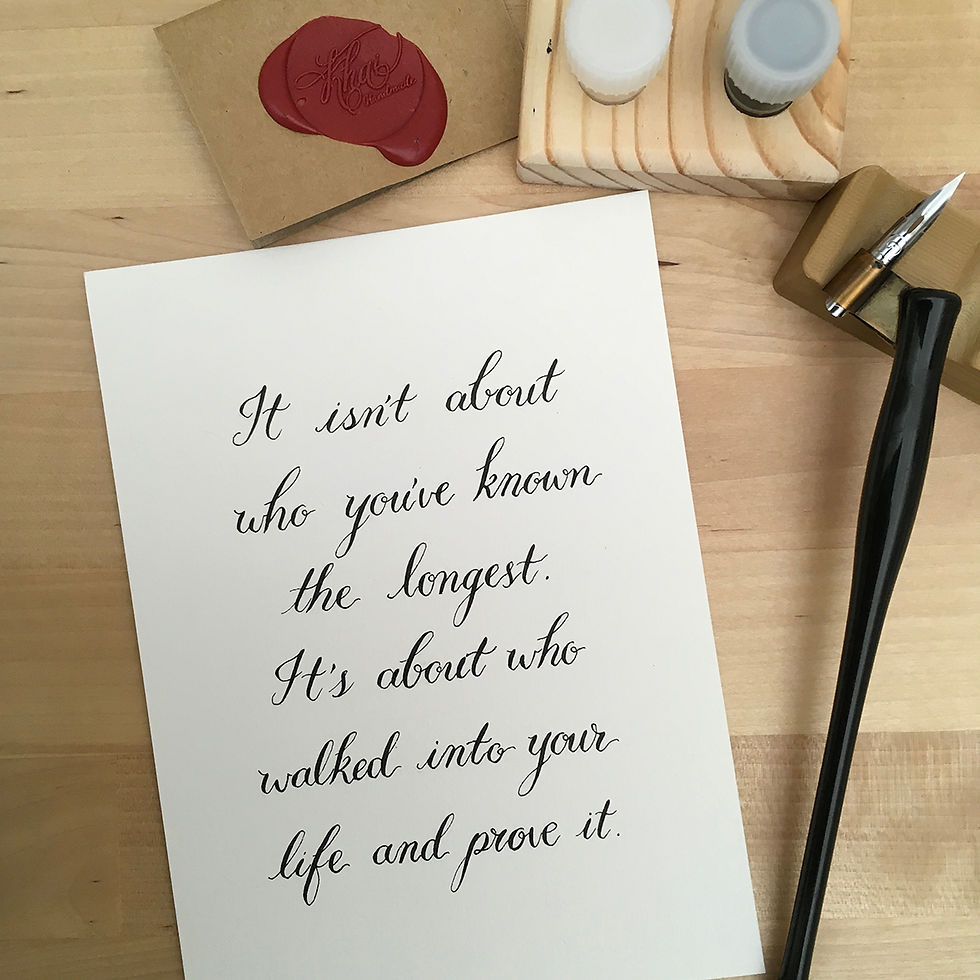 Khai
Handmade
It isn't about
who you've known
the longest.
It's about who
walked into your
life and prove it.